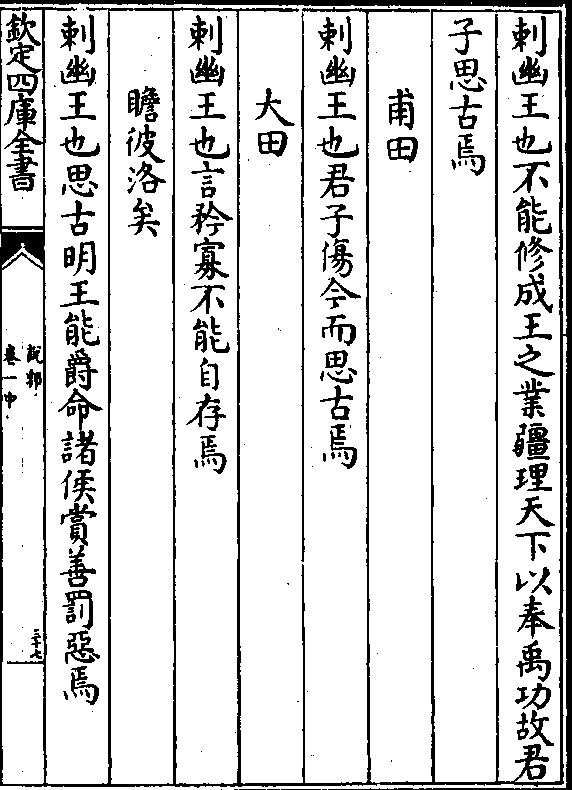 刺幽王也不能修成王之業疆理天下以奉禹功故君
子思古焉
甫田
刺幽王也君子傷今而思古焉
大田
刺幽王也言矜寡不能自存焉
瞻彼洛矣
刺幽王也思古明王能爵命諸侯賞善罰惡焉
欽定四庫全書
說郛
卷一中
三十七